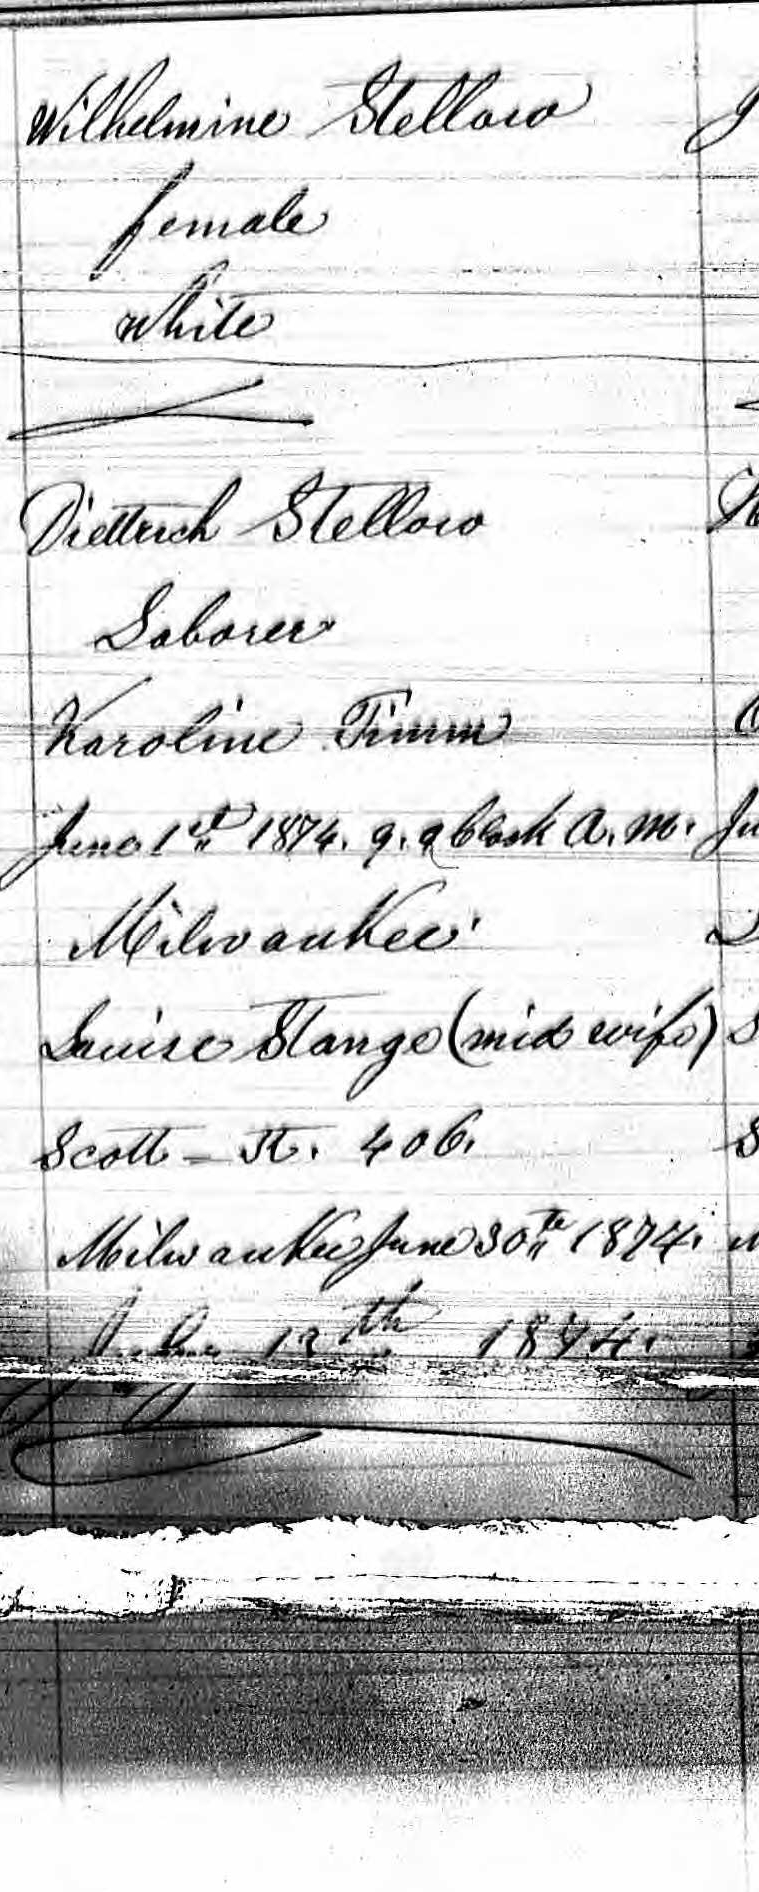 Wilhelmine Stellow
female
white
Diettrich Stellow
Laborer
Karoline Timm
June 1st 1874. 9. oclock A. M.
Milwaukee
Louise Stange (mid wife)
Scott - St. 406.
Milwaukee June 30th 1874.
July 13th 1874.